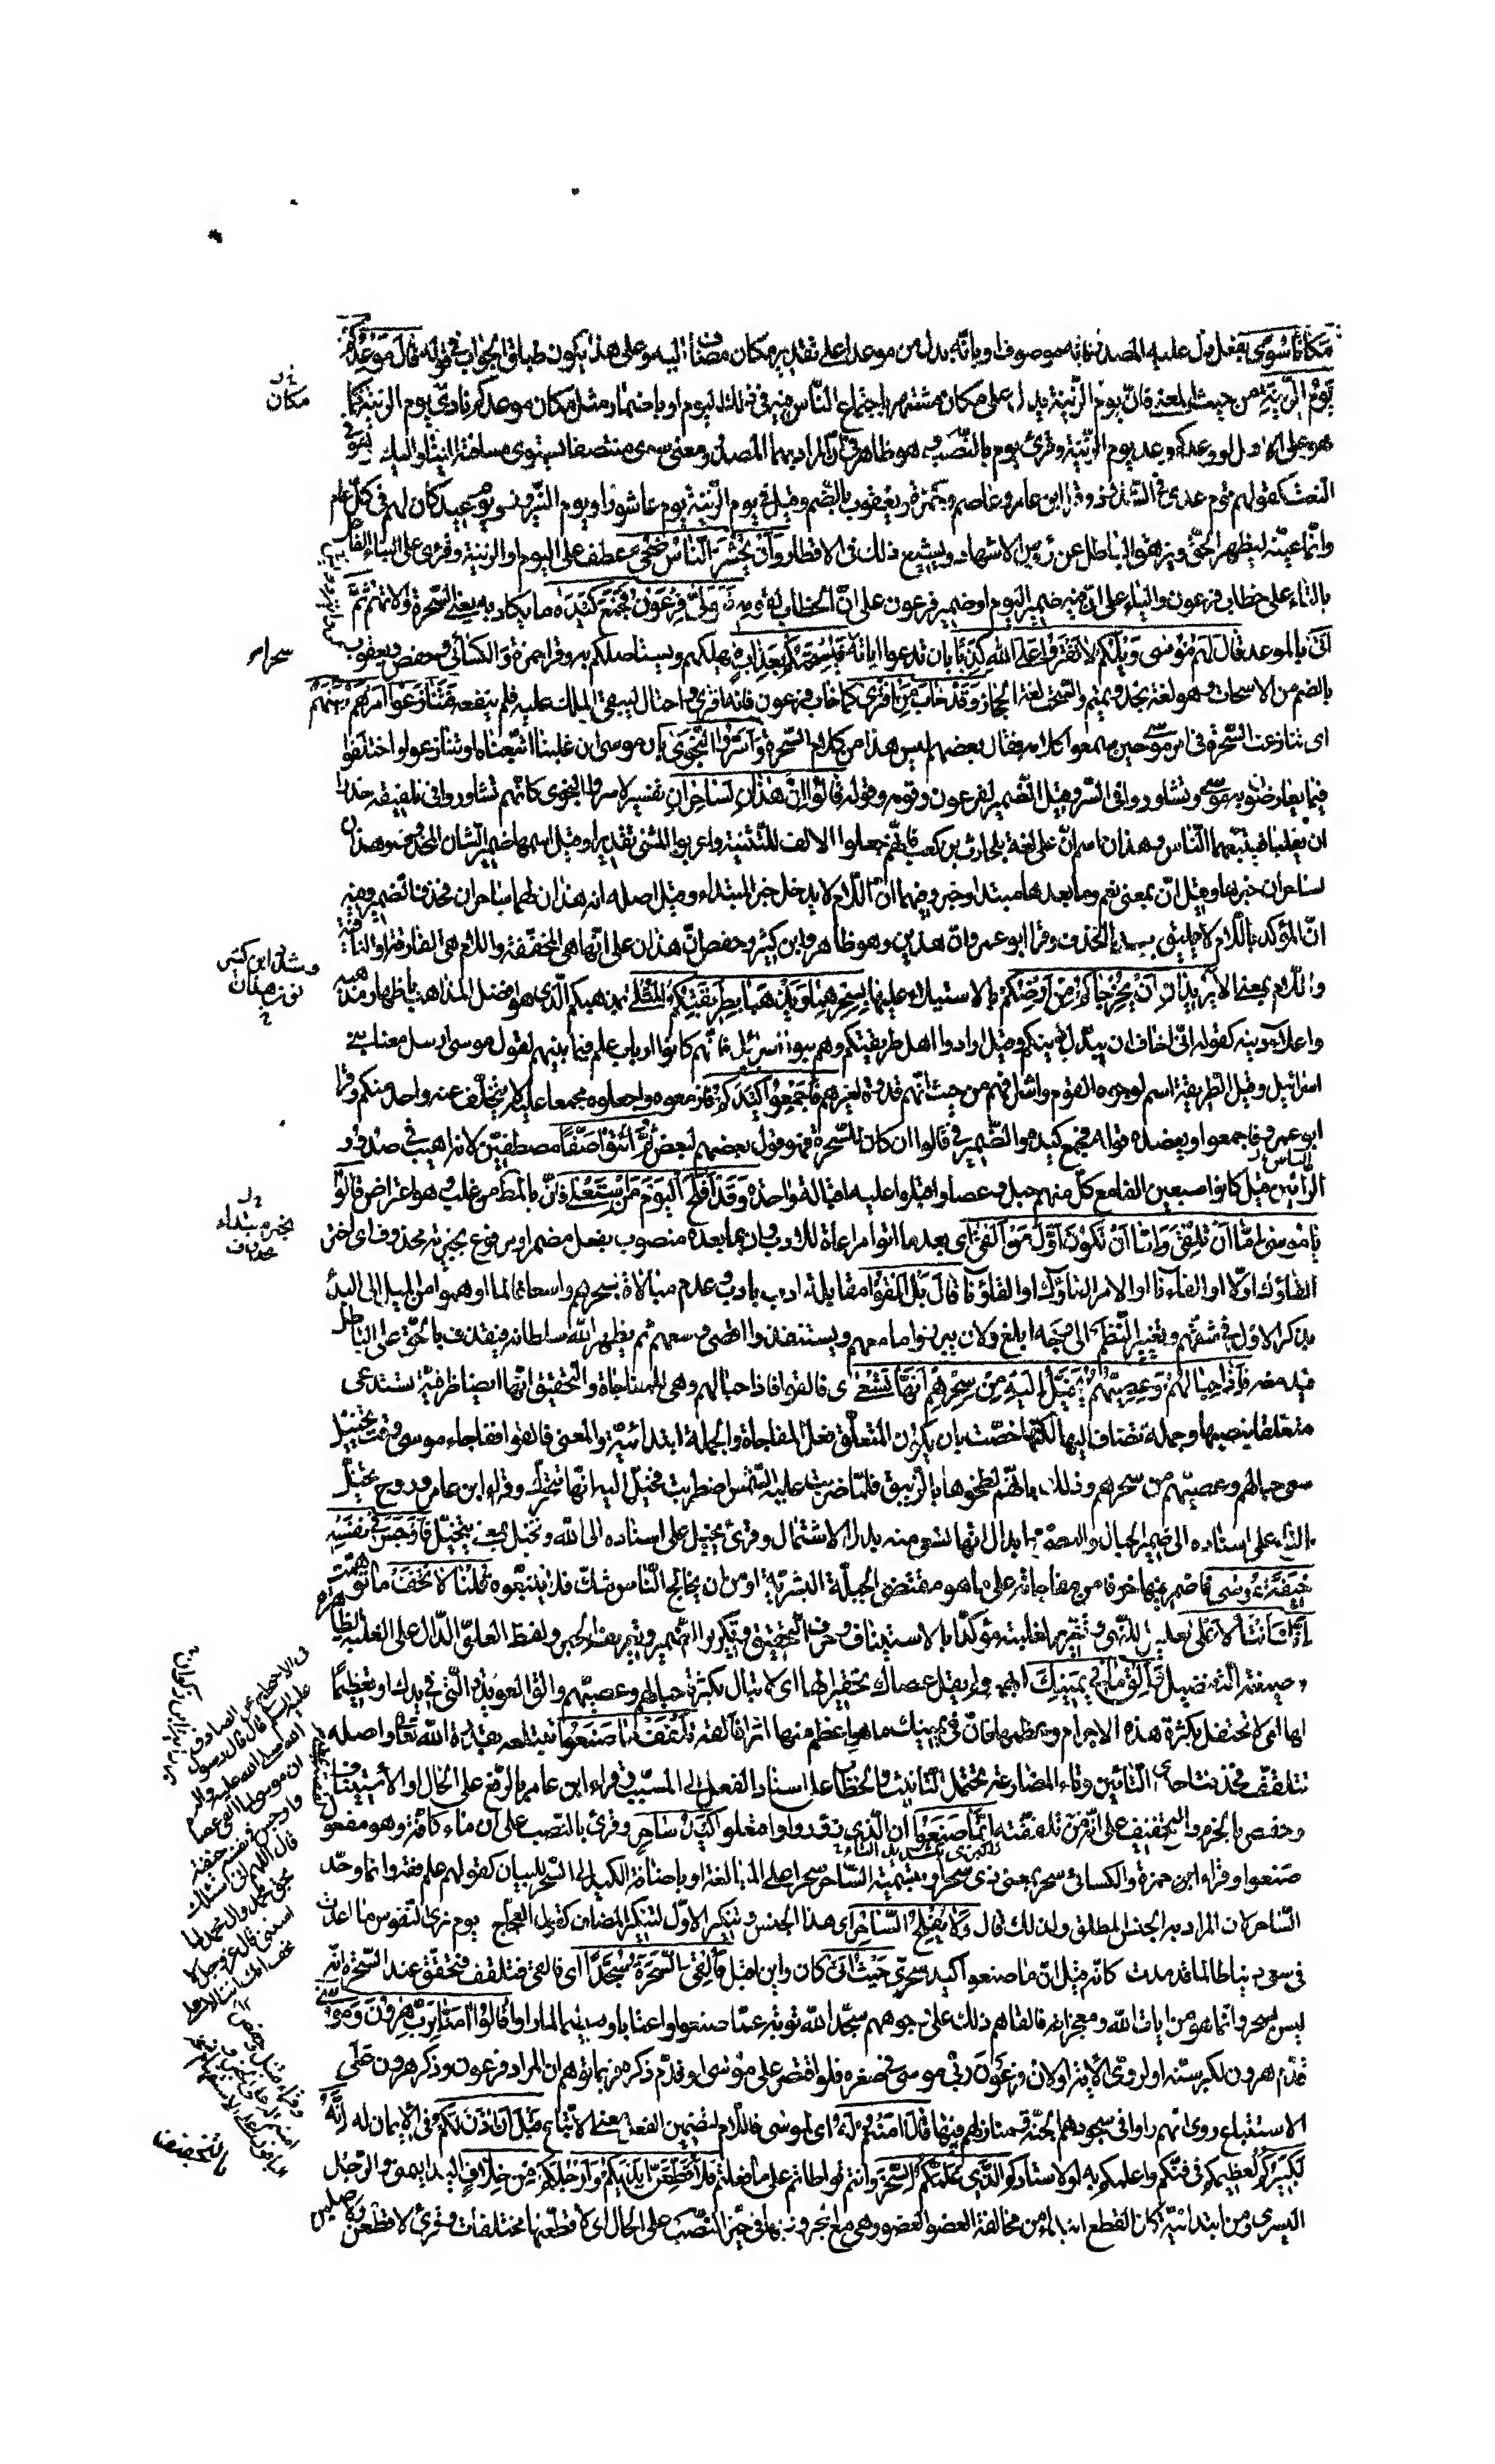 مكانا سوى بفعل دل عليه المصدر فانه موصوف او بانه بدل من موعدا على تقدير مكان مضاف اليه وعلى هذا يكون طباق الجواب في قوله قال موعدكم
يوم الزينة من حيث المعنى فان يوم الزينة يدل على مكان مشتهر باجتماع الناس فيه في ذلك اليوم او باضمار مثل مكان موعدكم مكان يوم الزينة كما
هو على الاول او وعدكم وعد يوم الزينة وقرئ يوم بالنصب وهو ظاهر في ان المراد بهما المصدر ومعنى سوى منتصفا يستوى مسافته الينا واليك وهو في
النعت كقولهم قوم عدى في الشذوذ وقرا ابن عامر وعاصم وحمزة ويعقوب بالضم وقيل في يوم الزينة يوم عاشورا او يوم النيروز او يوم عيد كان لهم في كل عام
وانما عينه ليظهر الحق ويزهق الباطل على رؤس الاشهاد ويشيع ذلك في الاقطار وان يحشر الناس ضحى عطف على اليوم او الزينة وقرئ على البناء للفاعل
بالتاء على خطاب فرعون والياء على ان فيه ضمير اليوم او ضمير فرعون على ان الخطاب لقومه فتولى فرعون فجمع كيده ما يكاد به يعنى السحرة والاتهم ثم
اتى بالموعد قال لهم موسى ويلكم لا تفتروا على الله كذبا بان تدعوا اياته سحرا فيسحتكم بعذاب فيهلككم ويستاصلكم به وقرا حمزة والكسائي وحفص ويعقوب
بالضم من الاسحات وهو لغة نجد وتميم والسحت لغة الحجاز وقد خاب من افترى كما خاب فرعون فانه افترى واحتال ليبقى الملك عليه فلم ينفعه فتنازعوا امرهم بينهم
اى تنازعت السحرة في امر موسى حين سمعوا كلامه فقال بعضهم ليس هذا من كلام السحرة واسروا النجوى بان موسى ان غلبنا اتبعناه او تنازعوا واختلفوا
فيما يعارضون به موسى وتشاوروا في السر وقيل الضمير لفرعون وقومه وقوله قالوا ان هذان لساحران تفسير لاسروا النجوى كانهم تشاوروا في تلفيقه حذرا
ان يغلبا فيتبعهما الناس وهذان اسم ان على لغة بلحارث بن كعب فانهم جعلوا الالف للتثنية واعربوا المثنى تقديرا وقيل اسمها ضمير الشان المحذوف وهذان
لساحران خبرها وقيل ان بمعنى نعم وما بعدها مبتدا وخبر وفيهما ان اللام لا يدخل خبر المبتداء وقيل اصله انه هذان لهما ساحران فحذف الضمير وفيه
ان المؤكد باللام لا يليق به الحذف وقرا ابو عمرو ان هذين وهو ظاهر وابن كثير وحفص ان هذان على انها هى المخففة واللام هى الفارقة او النافية
واللام بمعنى الا يريدان ان يخرجاكم من ارضكم بالاستيلاء عليها بسحرهما ويذهبا بطريقتكم المثلى بمذهبكم الذى هو افضل المذاهب باظهار مذهبه
واعلاء دينه لقوله انى اخاف ان يبدل دينكم وقيل ارادوا اهل طريقتكم وهم بنو اسرائيل فانهم كانوا ارباب علم فيما بينهم لقول موسى ارسل معنا بنى
اسرائيل وقيل الطريقة اسم لوجوه القوم واشرافهم من حيث انهم قدوة لغيرهم فاجمعوا كيدكم فازمعوه واجعلوه مجمعا عليه لا يتخلف عنه واحد منكم وقرا
ابو عمرو فاجمعوا ويعضده قوله فجمع كيده والضمير في قالوا ان كان للسحرة فهو قول بعضهم لبعض ثم ائتوا صفا مصطفين لانه اهيب في صدور
الرائين قيل كانوا سبعين الفا مع كل منهم حبل وعصا واقبلوا عليه اقبالة واحدة وقد افلح اليوم من استعلى فاز بالمطلوب من غلب وهو اعتراض قالوا
يا موسى اما ان تلقى واما ان نكون اول من القى اى بعد ما اتوا مراعاة للادب وان بما بعده منصوب بفعل مضمر او مرفوع بخبرية محذوف اى اختر
القاءك اولا او القاءنا او الامر القاؤك او القاؤنا قال بل القوا مقابلة ادب بادب وعدم مبالاة بسحرهم واسعافا الى ما اوهموا من الميل الى البدء
بذكر الاول في شقهم وتغيير النظم الى وجه ابلغ ولان يبرزوا ما معهم ويستنفدوا اقصى وسعهم ثم يظهر الله سلطانه فيقذف بالحق على الباطل
فيدمغه فاذا حبالهم وعصيهم يخيل اليه من سحرهم انها تسعى اى فالقوا فاذا حبالهم وهى للمفاجاة والتحقيق انها ايضا ظرفية تستدعى
متعلقا ينصبها وجملة تضاف اليها لكنها خصت بان يكون المتعلق فعل المفاجاة والجملة ابتدائية والمعنى فالقوا ففاجاء موسى وقت تخييل
سعى حبالهم وعصيهم من سحرهم وذلك بانهم لطخوها بالزيبق فلما ضربت عليه الشمس اضطربت فخيل اليه انها تتحرك وقراء ابن عامر وروح تخيل
بالتاء على اسناده الى ضمير الحبال والعصى وابدال انها تسعى منه بدل الاشتمال وقرئ يخيل على اسناده الى الله وتخيل بمعنى تتخيل فاوجس في نفسه
خيفة موسى فاضمر فيها خوفا من مفاجاته على ما هو مقتضى الجبلة البشرية او من ان يخالج الناس شك فلا يتبعوه قلنا لا تخف ما توهمت
انك انت الاعلى تعليل للنهى وتقرير لغلبته مؤكدا بالاستيناف وحرف التحقيق وتكرير الضمير وتعريف الخبر ولفظ العلو الدال على الغلبة الظاهرة
وصيغة التفضيل والق ما في يمينك ابهمه ولم يقل عصاك تحقيرا لها اى لا تبال بكثرة حبالهم وعصيهم والق العويدة التى في يدك او تعظيما
لها اى لا تحتفل بكثرة هذه الاجرام وعظمها فان في يمينك ما هو اعظم منها اثرا فالقه تلقف ما صنعوا تبتلعه بقدرة الله تعالى واصله
تتلقف فحذفت احدى التائين وتاء المضارعة تحتمل التانيث والخطاب على اسناد الفعل الى المسبب وقراء ابن عامر بالرفع على الحال او الاستيناف
وحفص بالجزم والتخفيف على انه من تلقفته انما صنعوا ان الذى زوروا وافتعلوا كيد ساحر وقرئ بالنصب على ان ما كافة وهو مفعول
صنعوا وقراء حمزة والكسائى سحر بمعنى ذى سحر او بتسمية الساحر سحرا على المبالغة او باضافة الكيد الى السحر للبيان كقولهم علم فقه وانما وحد
الساحر لان المراد به الجنس المطلق ولذلك قال ولا يفلح الساحر اى هذا الجنس وتنكير الاول لتنكير المضاف كقول العجاج يوم ترى النفوس ما اعدت
في سعى دنيا طالما قد مدت كانه قيل ان ما صنعوا كيد سحرى حيث اتى كان واين اقبل فالقى السحرة سجدا اى فالقى فتلقف فتحقق عند السحرة انه
ليس بسحر وانما هو من ايات الله ومعجزاته فالقاهم ذلك على وجوههم سجدا لله توبة عما صنعوا واعتابا وتعظيما لما راوا قالوا امنا برب هرون وموسى
قدم هرون لكبر سنه او لروى الاية او لان فرعون ربى موسى في صغره فلو اقتصر على موسى او قدم ذكره فربما توهم ان المراد فرعون وذكر هرون على
الاستتباع روى انهم راوا في سجودهم الجنة ومنازلهم فيها قال امنتم له اى لموسى فاللام لتضمين الفعل معنى الاتباع قبل ان اذن لكم في الايمان له انه
لكبيركم لعظيمكم في فنكم واعلمكم به او لاستاذكم الذى علمكم السحر وانتم تواطاتم على ما فعلتم فلاقطعن ايديكم وارجلكم من خلاف اليد اليمنى والرجل
اليسرى ومن ابتدائية كان القطع ابتداء من مخالفة العضو العضو وهى مع المجرور بها في حيز النصب على الحال اى لاقطعنها مختلفات وقرئ لاقطعن ولاصلبن
مكان
سحرا
وشدد ابن كثير نون هذان
بخبر مبتداء محذوف
في الاحتجاج عن الصادق
عليه السلام قال قال رسول
الله صلى الله عليه واله
ان موسى لما القى عصاه
واوجس في نفسه خيفة
قال اللهم انى اسئلك
بحق محمد وال محمد لما
امنتنى قال عز وجل لا
تخف انك انت الاعلى
بالتخفيف